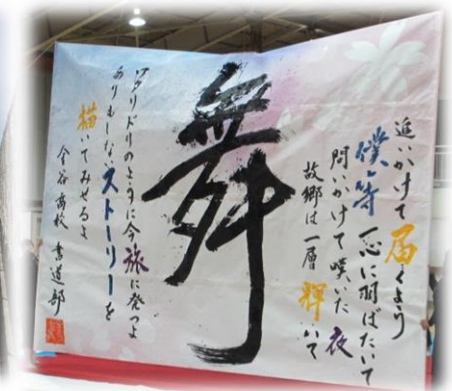 追いかけて届くよう
僕等一心に羽ばたいて
問いかけて嘆いた夜
故郷は一層輝いて
舞
ワタリドリのように今旅に発つよ
ありもしないストーリーを
描いてみせるよ
金谷高校 書道部